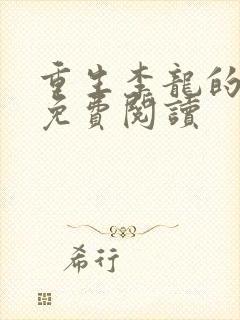 重生李龍的
免費閱讀
希行